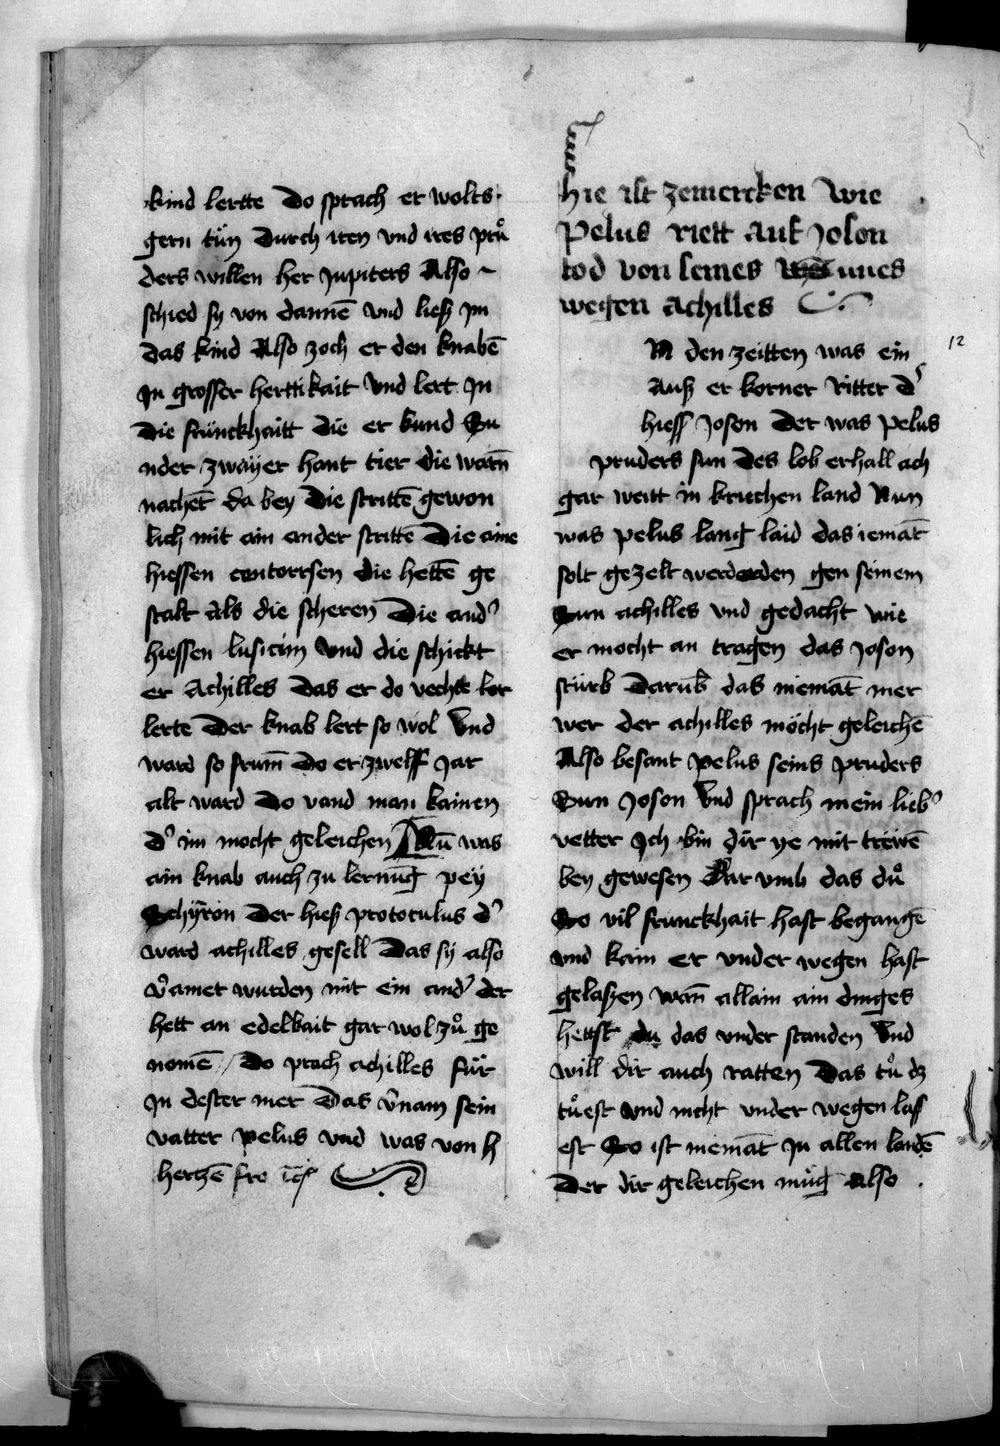 kind lertte Do sprach er wolts
gern tün Durch iren vnd ires prů
ders willen her Jupiters Also ~
schied sy von dannē vnd liesz jm
das kind Also zoch er den knabē
jn grosser herttikait vnd lert jn
die frünckhaitt die er kund Su
nder zwayer hant tier die warn̄
nachet̄ da bey Die strittē gewon
lich mit ain ander strittē Die aine
hiessen centorrsen die hettē ge
stalt als die scheren Die and'
hiessen lusicim vnd die schickt
er Achilles Das er do vechtē ler
lerte Der knab lert so wol vnd
ward so frum̄ Do er zwelff Jar
alt ward Do vand man kainen
d' im mocht geleichen Nū was
ain knab auch zu lernūg pey
Schyron Der hiesz protoculus d'
ward achilles gesell Das sy also
v'amet wurden mit ein and' der
hett an edelkait gar wol zů ge
nomē / Do prach achilles für
jn dester mer Das v'nam sein
vatter pelus vnd was von h
hertzē fro
hie ist zemercken wie
Pelus riett auf Joson
tod von seines suues
wegen Achilles
N den zeitten was ein
Ausz er korner ritter d'
hiess Joson Der was pelus
pruders sun Des lob erhall ach
gar weitt in kriechen land Nun
was pelus lang laid das iemāt
solt gezelt werdorden gen seinem
Sun achilles vnd gedacht wie
er mocht an tragen das Joson
stürb Darūb das niemāt mer
wer der achilles möcht geleichē
Also besant pelus seins pruders
Sun Joson vnd sprach mein lieb'
vetter Ich bin dir ye mit trewē
bey gewesen Dar vmb das dů
So vil frunckhait hast begangē
vnd kain er vnder wegen hast
gelaszen wan̄ allain ain dinges
hettst du das vnder standen vnd
will dir auch ratten Das tů dz
tůest vnd nicht vnder wegen lass
est So ist niemāt jn allen landē
Der dir geleichen müg Also
12